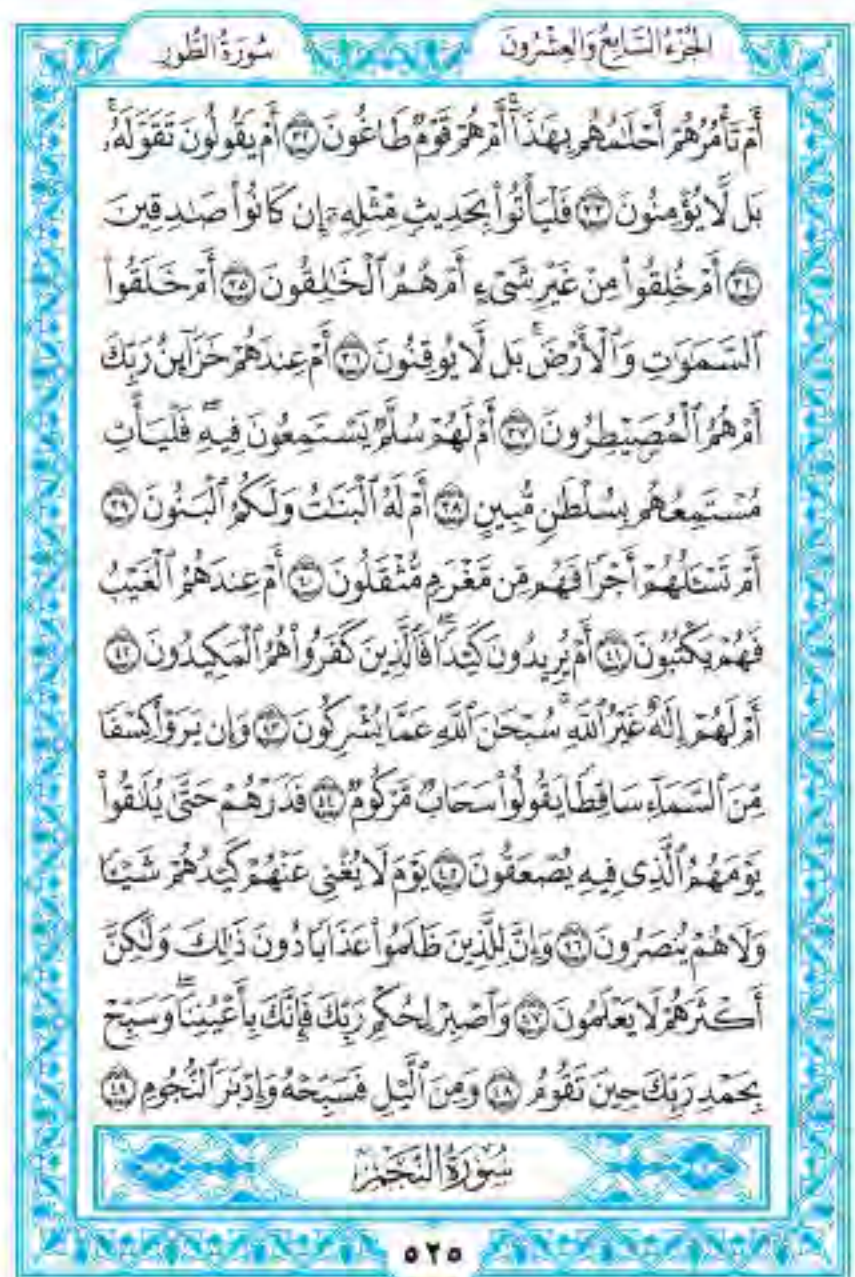 الجُزْءُ السَّابِعُ وَالعِشْرُونَ سُورَةُ الطُّورِ
أَمْ تَأْمُرُهُمْ أَحْلَٰمُهُم بِهَٰذَآۚ أَمْ هُمْ قَوْمٌ طَاغُونَ ٣٢ أَمْ يَقُولُونَ تَقَوَّلَهُۥۚ
بَل لَّا يُؤْمِنُونَ ٣٣ فَلْيَأْتُوا۟ بِحَدِيثٍ مِّثْلِهِۦٓ إِن كَانُوا۟ صَٰدِقِينَ
٣٤ أَمْ خُلِقُوا۟ مِنْ غَيْرِ شَىْءٍ أَمْ هُمُ ٱلْخَٰلِقُونَ ٣٥ أَمْ خَلَقُوا۟
ٱلسَّمَٰوَٰتِ وَٱلْأَرْضَۚ بَل لَّا يُوقِنُونَ ٣٦ أَمْ عِندَهُمْ خَزَآئِنُ رَبِّكَ
أَمْ هُمُ ٱلْمُصَۣيْطِرُونَ ٣٧ أَمْ لَهُمْ سُلَّمٌ يَسْتَمِعُونَ فِيهِۖ فَلْيَأْتِ
مُسْتَمِعُهُم بِسُلْطَٰنٍ مُّبِينٍ ٣٨ أَمْ لَهُ ٱلْبَنَٰتُ وَلَكُمُ ٱلْبَنُونَ ٣٩
أَمْ تَسْـَٔلُهُمْ أَجْرًا فَهُم مِّن مَّغْرَمٍ مُّثْقَلُونَ ٤٠ أَمْ عِندَهُمُ ٱلْغَيْبُ
فَهُمْ يَكْتُبُونَ ٤١ أَمْ يُرِيدُونَ كَيْدًاۖ فَٱلَّذِينَ كَفَرُوا۟ هُمُ ٱلْمَكِيدُونَ ٤٢
أَمْ لَهُمْ إِلَٰهٌ غَيْرُ ٱللَّهِۚ سُبْحَٰنَ ٱللَّهِ عَمَّا يُشْرِكُونَ ٤٣ وَإِن يَرَوْا۟ كِسْفًا
مِّنَ ٱلسَّمَآءِ سَاقِطًا يَقُولُوا۟ سَحَابٌ مَّرْكُومٌ ٤٤ فَذَرْهُمْ حَتَّىٰ يُلَٰقُوا۟
يَوْمَهُمُ ٱلَّذِى فِيهِ يُصْعَقُونَ ٤٥ يَوْمَ لَا يُغْنِى عَنْهُمْ كَيْدُهُمْ شَيْـًٔا
وَلَا هُمْ يُنصَرُونَ ٤٦ وَإِنَّ لِلَّذِينَ ظَلَمُوا۟ عَذَابًا دُونَ ذَٰلِكَ وَلَٰكِنَّ
أَكْثَرَهُمْ لَا يَعْلَمُونَ ٤٧ وَٱصْبِرْ لِحُكْمِ رَبِّكَ فَإِنَّكَ بِأَعْيُنِنَاۖ وَسَبِّحْ
بِحَمْدِ رَبِّكَ حِينَ تَقُومُ ٤٨ وَمِنَ ٱلَّيْلِ فَسَبِّحْهُ وَإِدْبَٰرَ ٱلنُّجُومِ ٤٩
سُورَةُ النَّجْمِ
٥٢٥